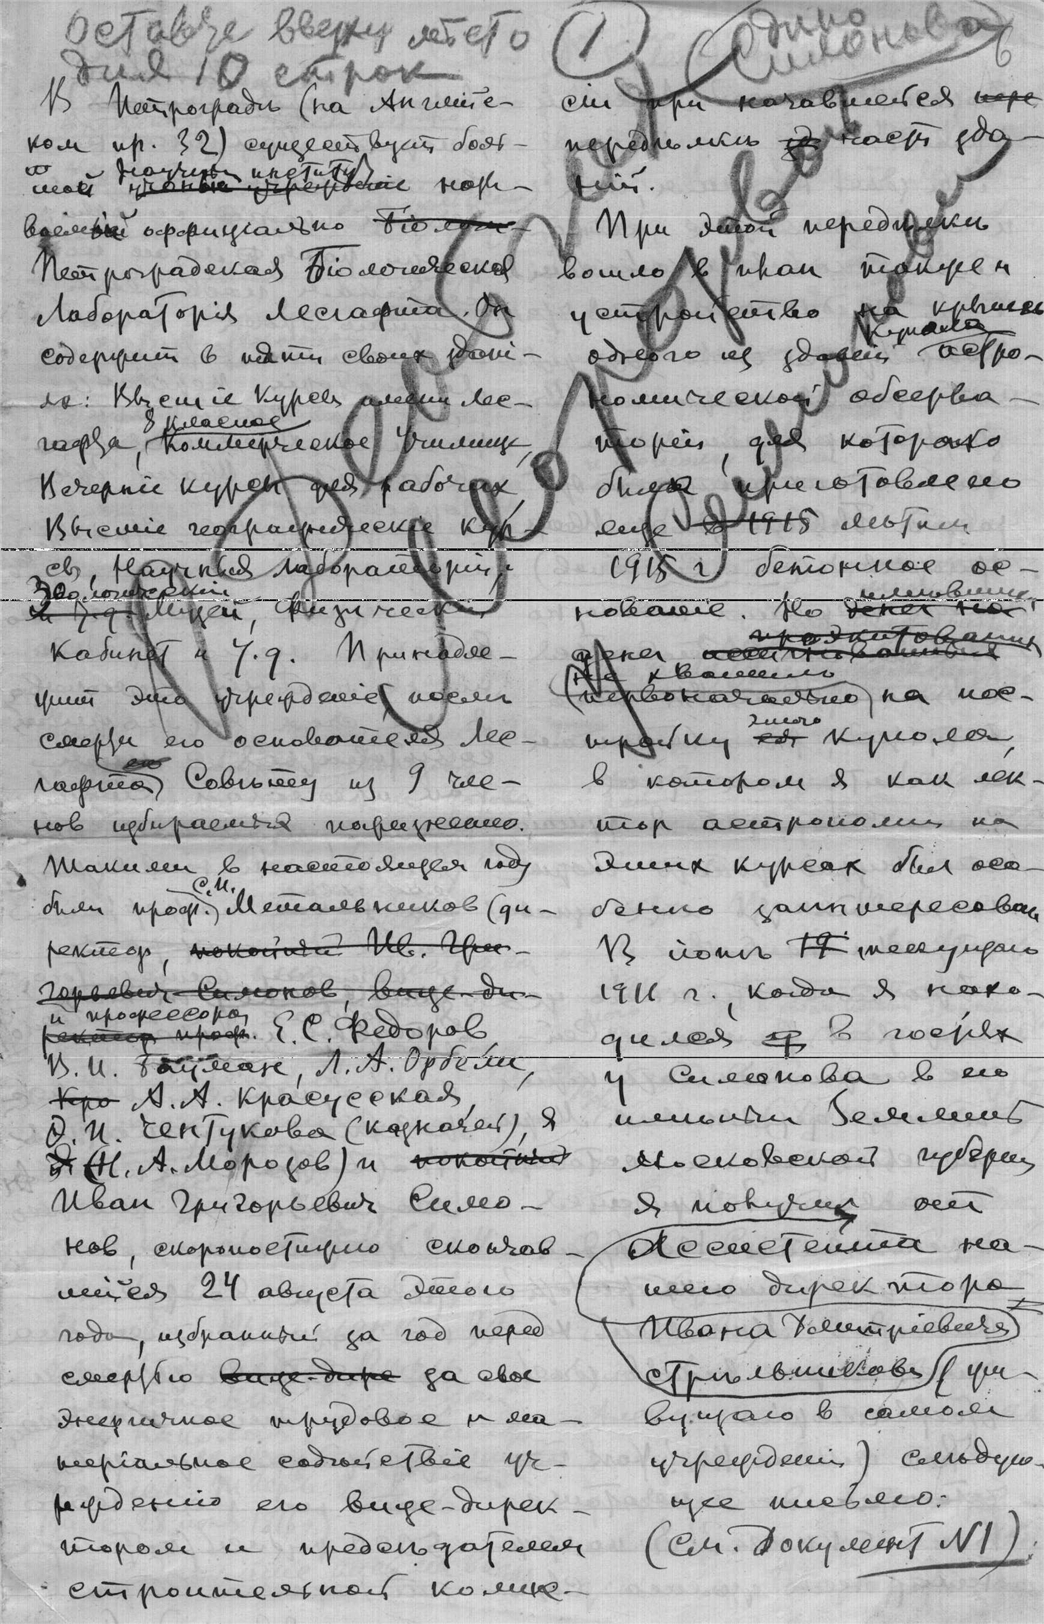 Оставьте вверху место
для 10 строк
1
В Петроградѣ (на Англiйс-
ком пр. 32) существует боль-
шой научный институт
ученое учрежденiе наз-
ваемый оффицiально Бiолог-
Петроградская Бiологическая
Лабораторiя Лесгафта. Он
содержит в пяти своих здані-
ях: Высшiе Курсы имени Лес-
гафта, 8 классное Коммерческое Училище,
Вечернiе курсы для рабочих,
Высшiе географическiе Кур-
сы, Научныя лабораторiи,
Зоологическiй
Музей, Физическiй
Кабинет и т.д. Принадле-
жит это учрежденiе, послѣ
смерти его основателя Лес-
гафта, Совѣту из 9 чле-
нов избираемых пожизненно.
Такими в настоящем году
были проф. С.И. Метальников (ди-
ректор, покойный Ив. Гри-
горьевич Симонов, вице-ди-
ректор проф.
и профессора Е.С. Федоров
В.И. Бауман, Л.А. Орбели,
Кра А.А. Красусская,
О.И. Чентукова (казначей), я
Я (Н.А. Морозов) и покойный
Иван Григорьевич Симо-
нов, скоропостижно скончав-
шiйся 24 августа этого
года, избранный за год перед
смертью вице-дире за свое
энергичное трудовое и ма-
терiальное содѣйствiе уч-
режденiю его вице-дирек-
тором и предсѣдателем
строительной комис-
сiи при начавшейся пере
передѣлкѣ зд части зда-
нiй.
При этой передѣлкѣ
вошло в план также и
устройство на крышѣ
одного из зданiй купола астро-
номической обсерва-
торiи, для которого
было приготовлено
еще в 1915 лѣтом
1915 г бетонное ос-
нованiе. Но денег на
имѣвших
денег ассигнованных
не хватило
(первоначально) на пос-
тройку этого купола,
в котором я как лек-
тор астрономiи на
этих курсах был осо-
бенно заинтересован
В iюлѣ 19 текущаго
1916 г., когда я нахо-
дился в гостях
у Симонова в его
имѣнiи
Московской губернiи
я получил от
Ассистента на-
шего директора
Ивана Дмитрiевича
Стрѣльникова (жи-
вущаго в самом
учрежденiи) слѣдую-
щее письмо:
(См. Документ N1).